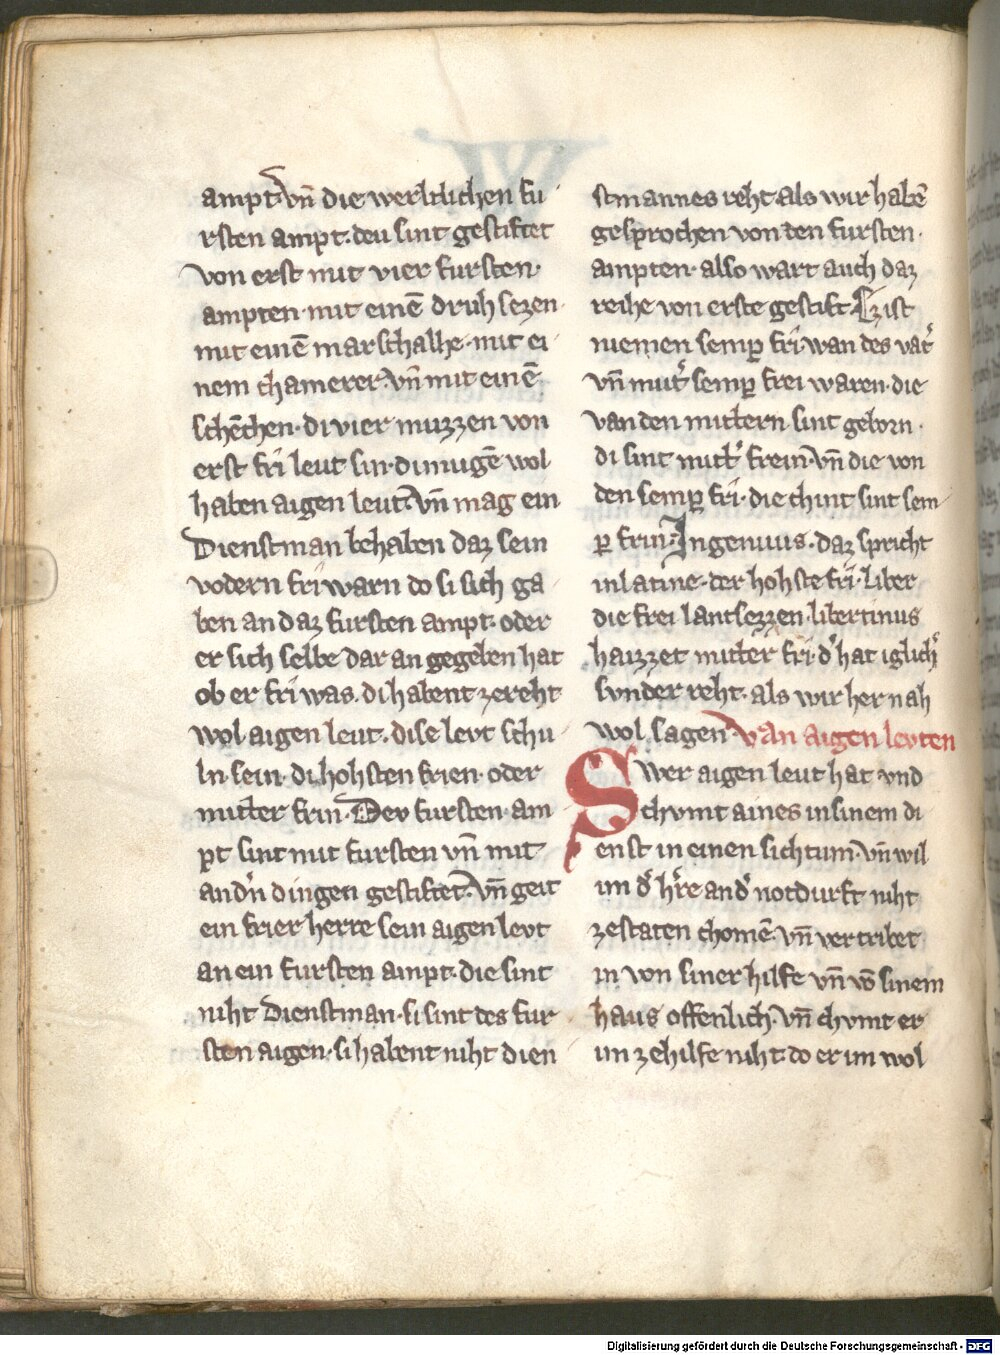 ampt. vn̄ die werltlichen fu
rsten ampt. deu sint gestiftet
von erst mit vier fursten
ampten. mit einē druhsezen
mit einē marschalhe. mit ei
nem chamerer. vn̄ mit einē
schēchen. di vier muzzen von
erst fri leut sin. di mugē wol
haben aigen leut. vn̄ mag ein
Dienstman behaben daz sein
vodern fri warn do si sich ga
ben an daz fursten ampt. oder
er sich selbe dar an gegeben hat
ob er fri was. di habent ze reht
wol aigen leut. dise levt schu
ln sein. di hohsten frien. oder
mitter frin. Dev fursten am
pt sint mit fursten vn̄ mit
andn̄ dingen gestiftet. vn̄ geit
ein frier herre sein aigen levt
an ein fursten ampt. die sint
niht Dienstman. si sint des fur
sten aigen. si habent niht dien
stmannes reht. als wir habē
gesprochen von den fursten.
ampten. also wart auch daz
reihe von erste gestift. Ez ist
niemen semp̱ fri wan des vat̓
vn̄ mut̓ semp̱ frei waren. die
van den mittern sint geborn.
di sint mitt̓ frein. vn̄ die von
den semp̱ fri. die chint sint sem
p̱ frin. Ingenuus. daz spricht
in latine. der hohste fri. liber
die frei lantsezzen. libertinus
haizzet mitter fri. d̓ hat iglich̓
svnder reht. als wir her nah
wol sagen. van aigen levten
Swer aigen leut hat vnd
chvmt aines in sinem di
enst in einen sichtum. vn̄ wil
im d̓ h̓re an d̓ notdurft niht
ze staten chomē. vn̄ vertribet
in von siner hilfe vn̄ vō sinem
haus offenlich. vn̄ chvmt er
im ze hilfe niht. do er im wol
Digitalisierung gefördert durch die Deutsche Forschungsgemeinschaft - DFG